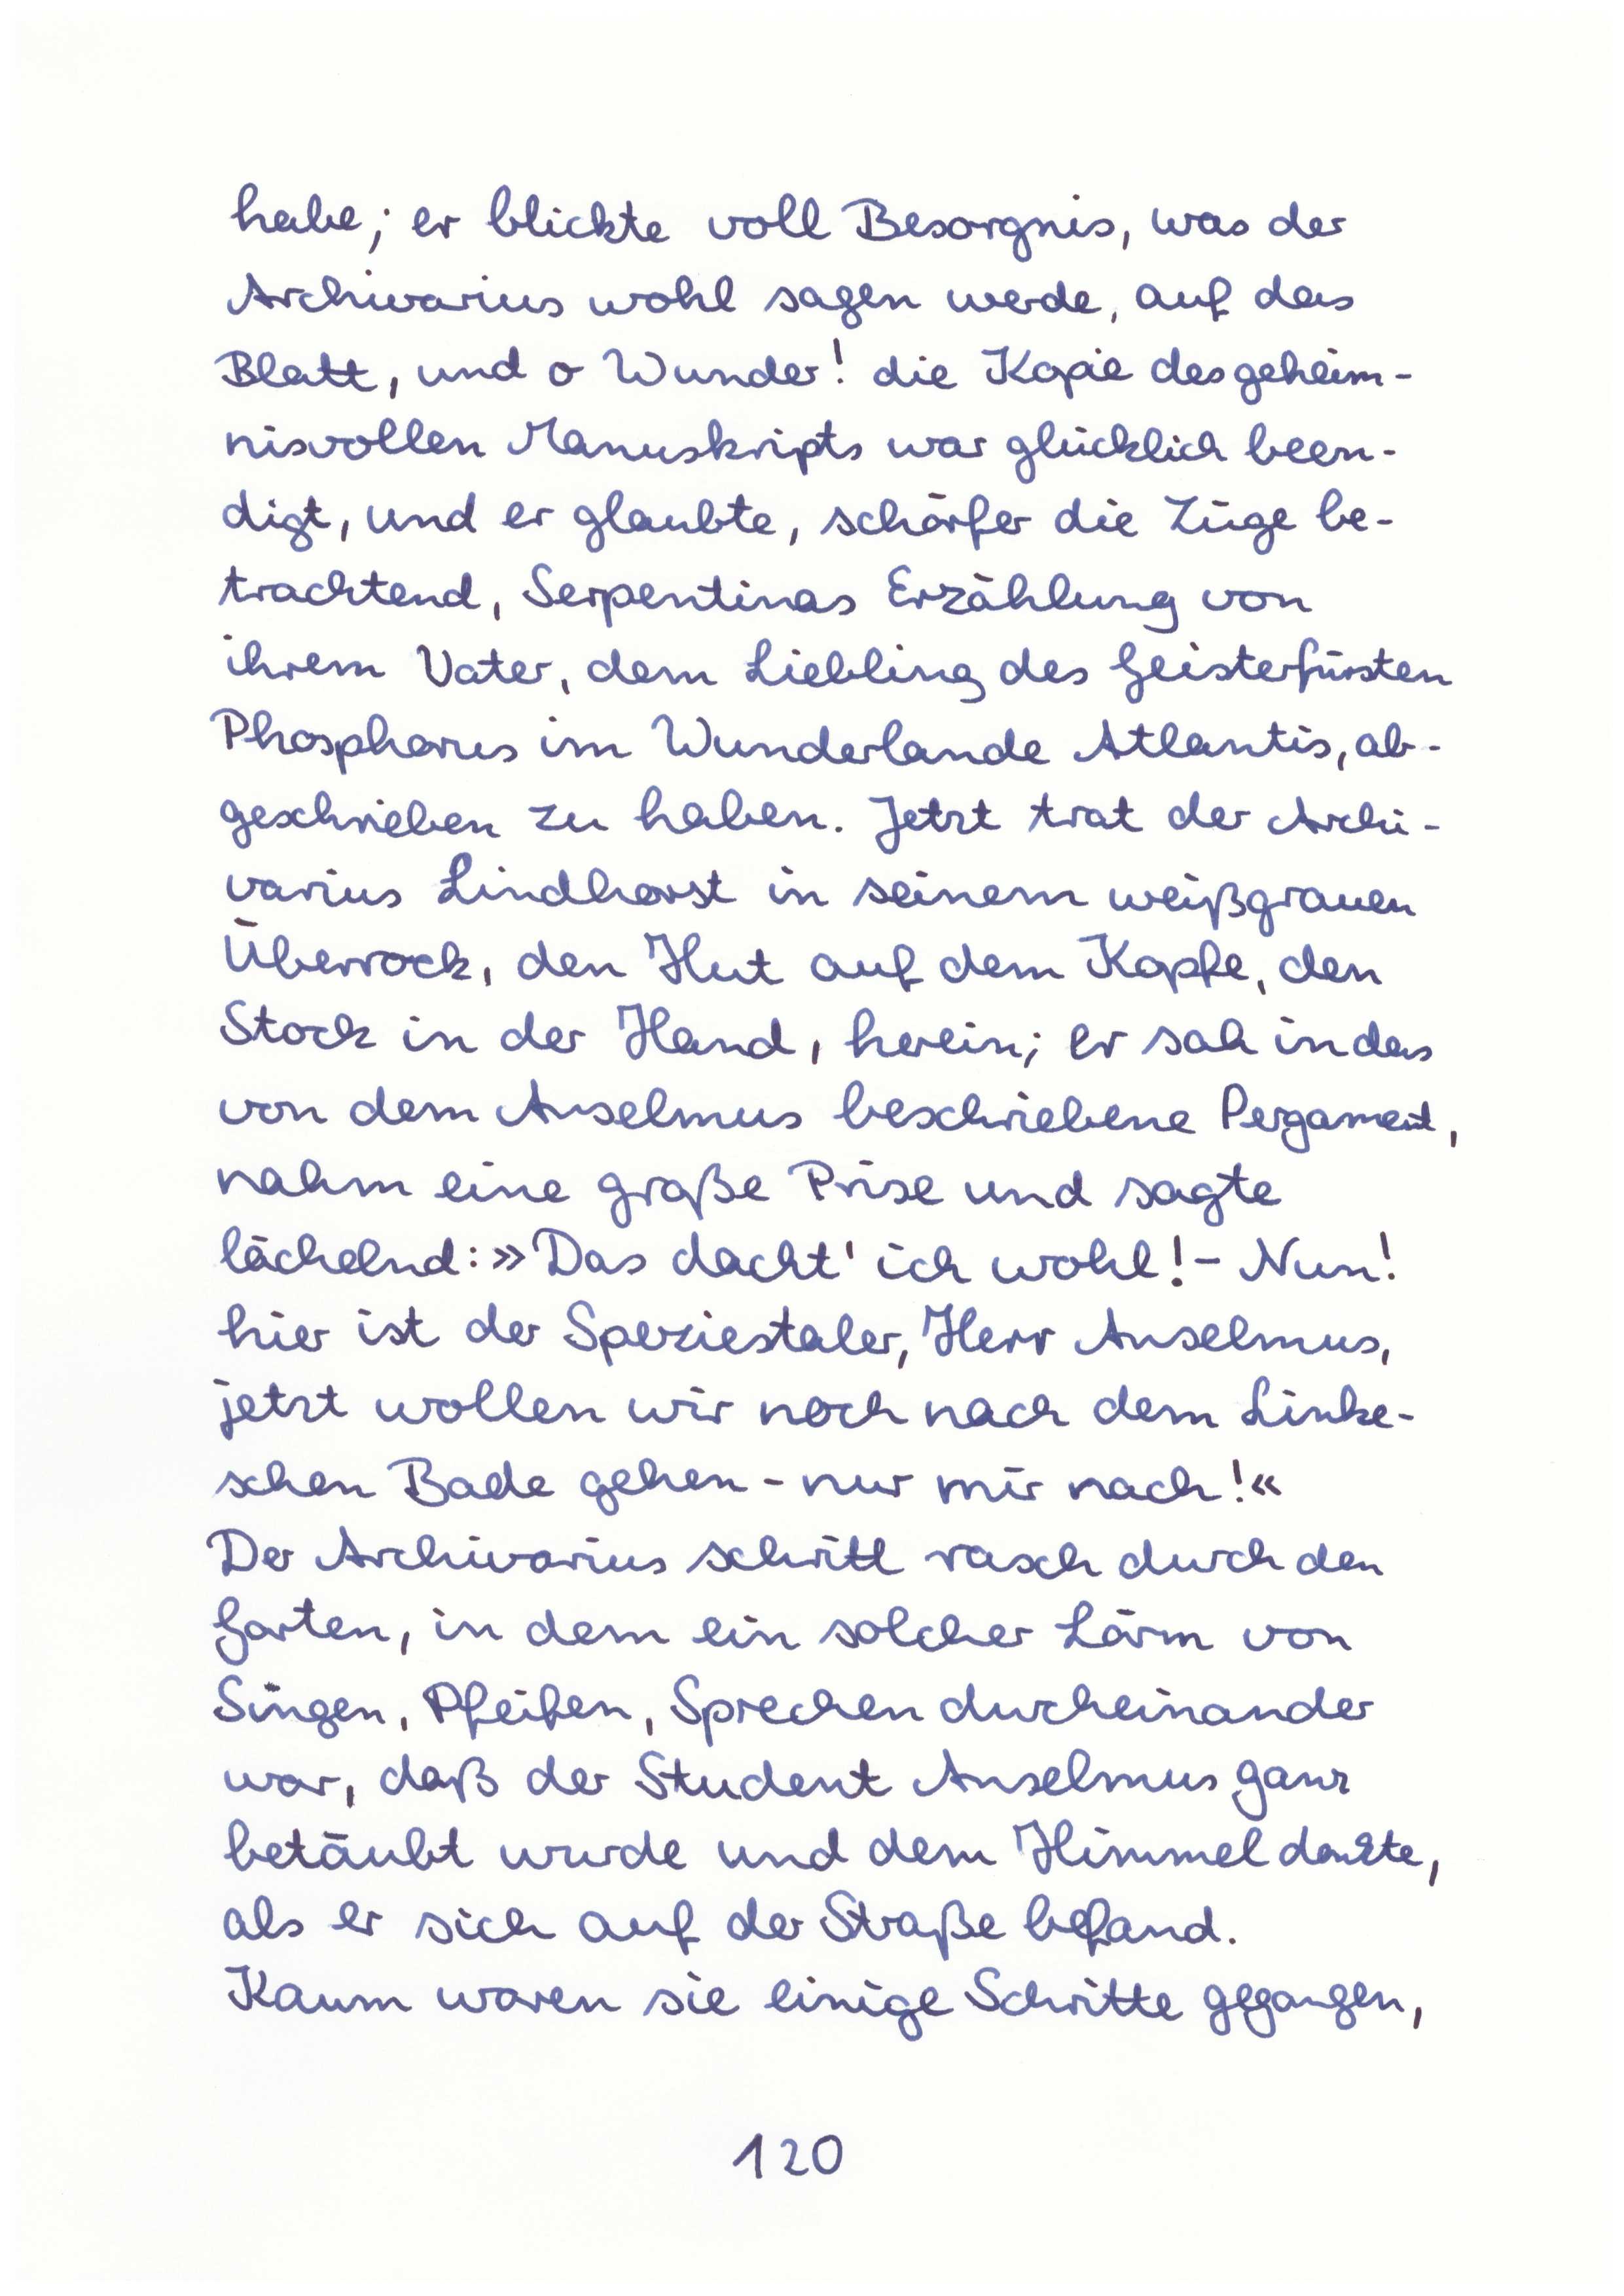 habe; er blickte voll Besorgnis, was der
Archivarius wohl sagen werde, auf das
Blatt, und o Wunder! die Kopie des geheim-
nisvollen Manuskripts war glücklich been-
digt, und er glaubte, schärfer die Züge be-
trachtend, Serpentinas Erzählung von
ihrem Vater, dem Liebling des Geisterfürsten
Phosphorus im Wunderlande Atlantis, ab-
geschrieben zu haben. Jetzt trat der Archi-
varius Lindhorst in seinem weißgrauen
Überrock, den Hut auf dem Kopfe, den
Stock in der Hand, herein; er sah in das
von dem Anselmus beschriebene Pergament,
nahm eine große Prise und sagte
lächelnd: »Das dacht' ich wohl! – Nun!
hier ist der Speziestaler, Herr Anselmus,
jetzt wollen wir noch nach dem Linke-
schen Bade gehen – nur mir nach!«
Der Archivarius schritt rasch durch den
Garten, in dem ein solcher Lärm von
Singen, Pfeifen, Sprechen durcheinander
war, daß der Student Anselmus ganz
betäubt wurde und dem Himmel dankte,
als er sich auf der Straße befand.
Kaum waren sie einige Schritte gegangen,
120